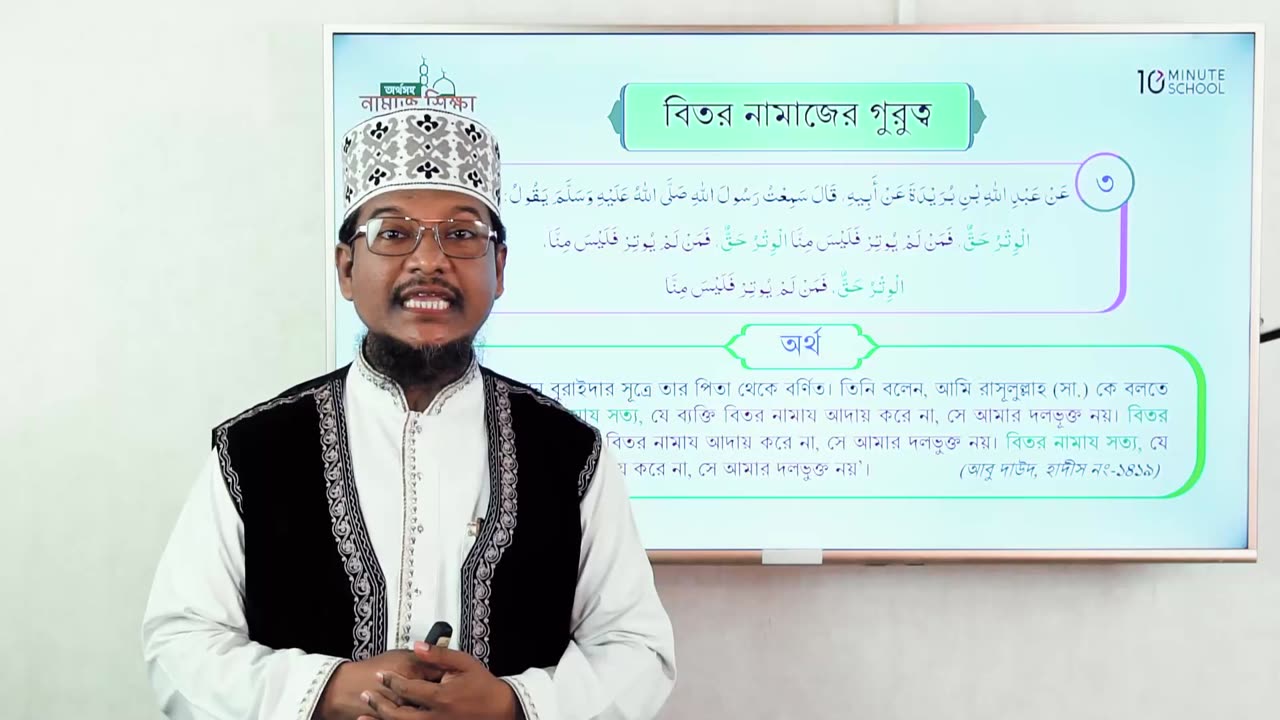 অর্থসহ
নামাজ শিক্ষা
10 MINUTE
SCHOOL
বিতর নামাজের গুরুত্ব
৩
عَنْ عَبْدِ اللهِ بْنِ بُرَيْدَةَ عَنْ أَبِيهِ، قَالَ سَمِعْتُ رَسُولَ اللهِ صَلَّى اللهُ عَلَيْهِ وَسَلَّمَ يَقُولُ:
الْوِتْرُ حَقٌّ، فَمَنْ لَمْ يُوتِرْ فَلَيْسَ مِنَّا الْوِتْرُ حَقٌّ، فَمَنْ لَمْ يُوتِرْ فَلَيْسَ مِنَّا،
الْوِتْرُ حَقٌّ، فَمَنْ لَمْ يُوتِرْ فَلَيْسَ مِنَّا
অর্থ
বুরাইদার সূত্রে তার পিতা থেকে বর্ণিত। তিনি বলেন, আমি রাসূলুল্লাহ (সা.) কে বলতে
সত্য, যে ব্যক্তি বিতর নামায আদায় করে না, সে আমার দলভূক্ত নয়। বিতর
বিতর নামায আদায় করে না, সে আমার দলভুক্ত নয়। বিতর নামায সত্য, যে
করে না, সে আমার দলভুক্ত নয়'। (আবু দাউদ, হাদীস নং-১৪১৯)